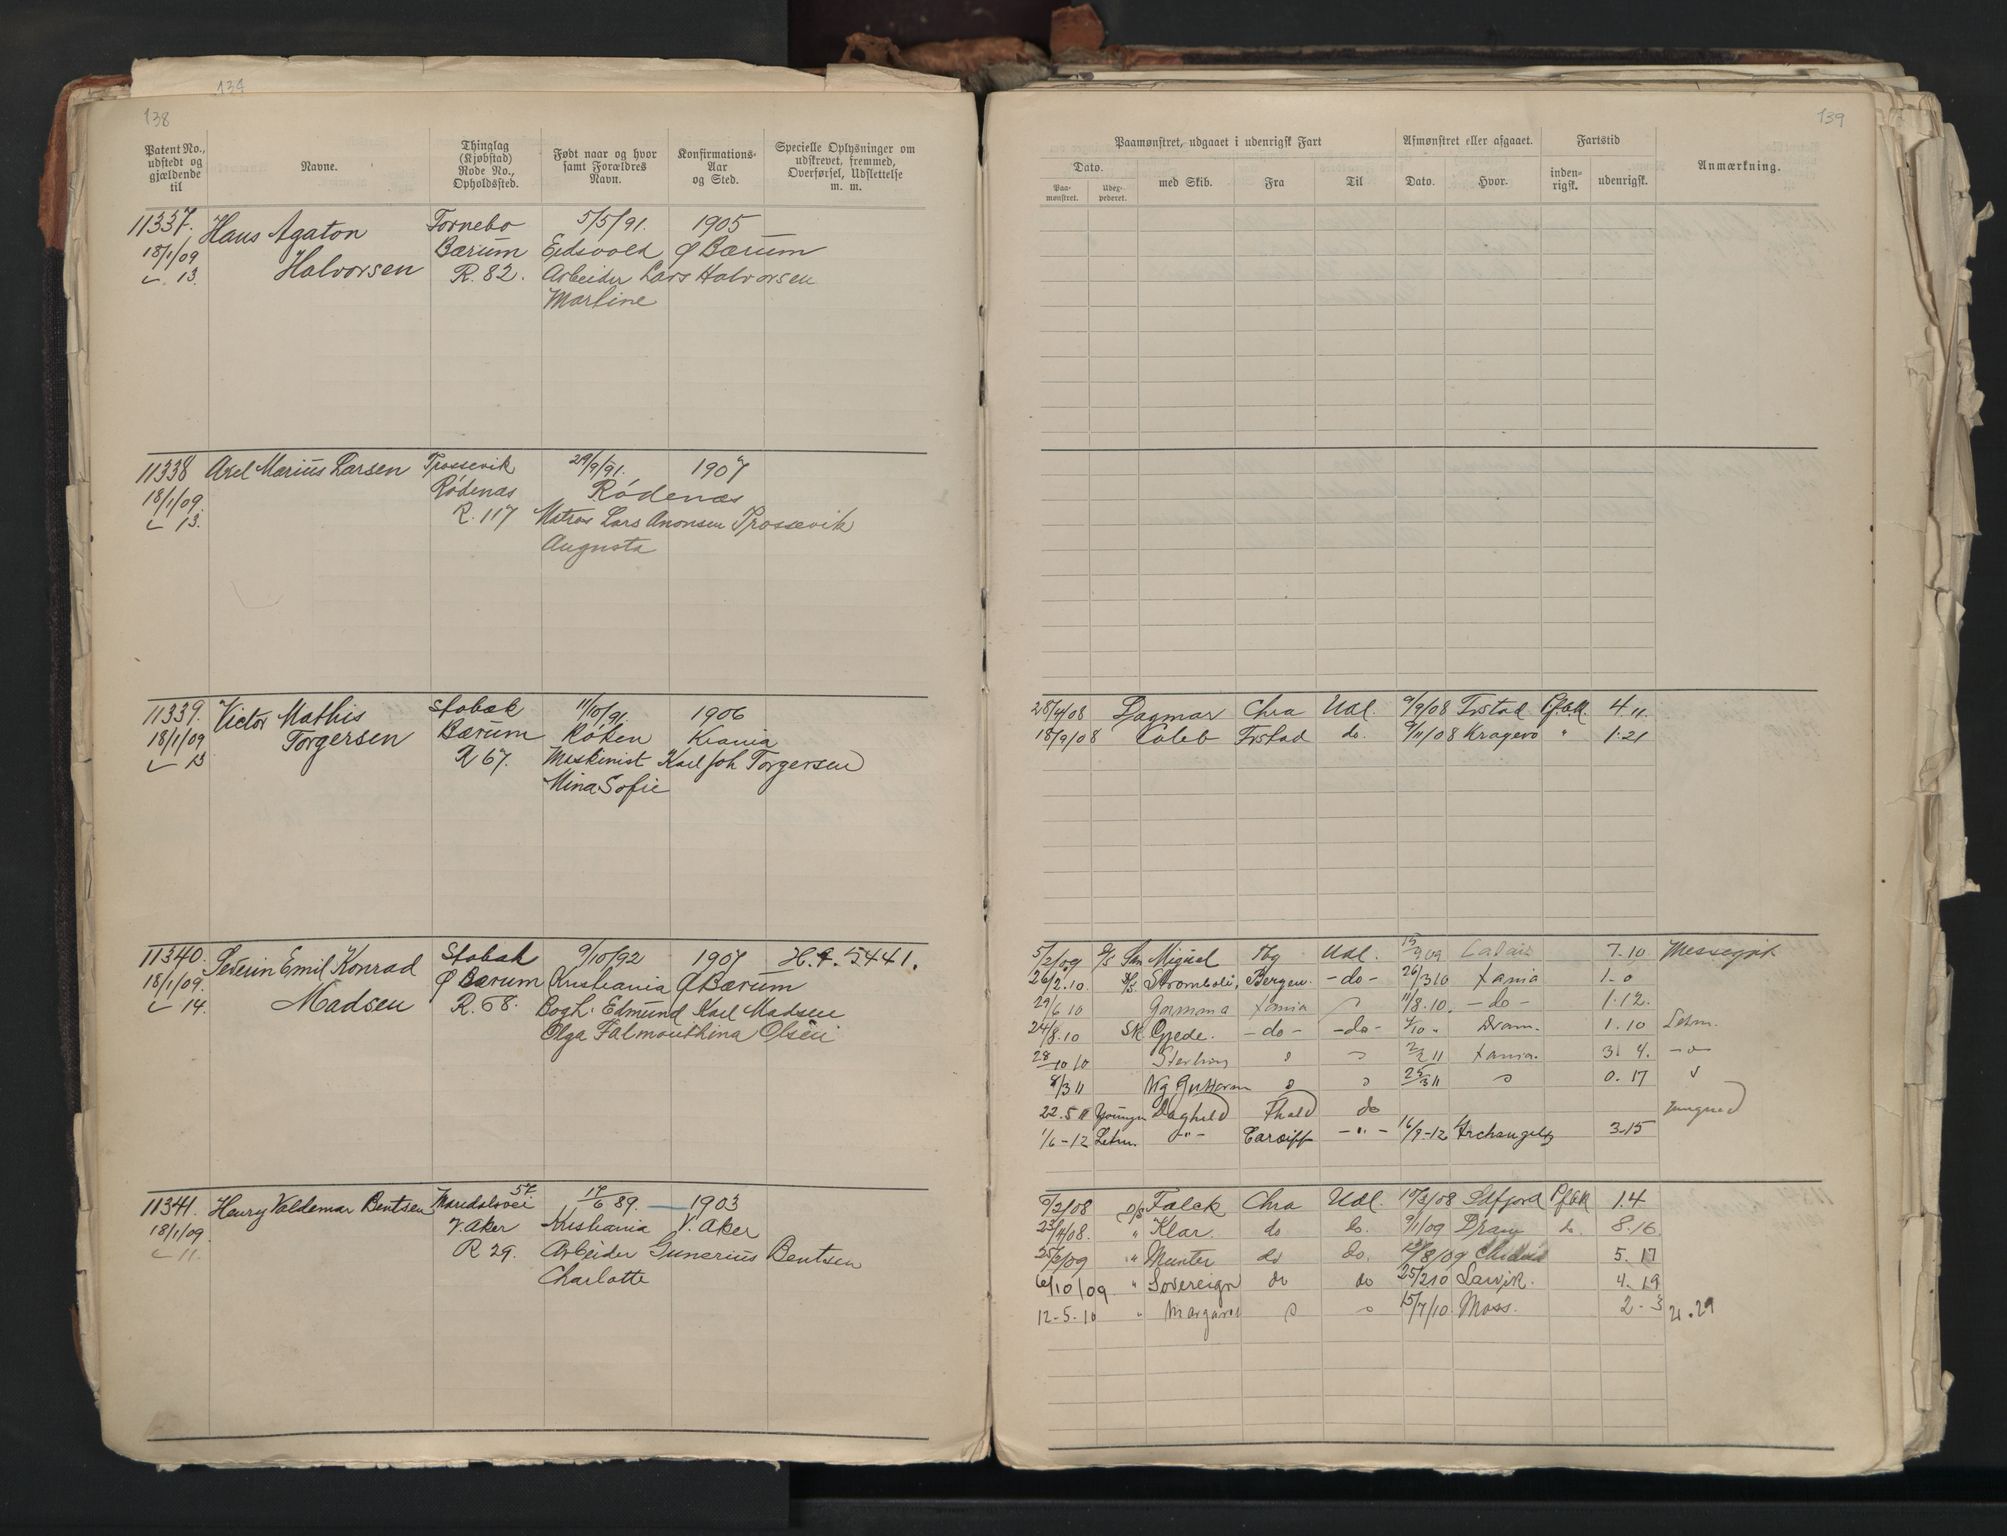 134
138
Patent No., udstedt og gjældende til
Navne.
Thinglag (Kjøbstad) Rode No., Opholdssted.
Født naar og hvor samt Forældres Navn.
Konfirmations-Aar og Sted.
Specielle Oplysninger om udskrevet, fremmed, Overførsel, Udslettelse m. m.
11337. Hans Agaton Tornebo 5/5/91. 1905
18/1/09 Halvorsen Bærum Eidsvold Ø Bærum
13. R. 82. Arbeider Lars Halvorsen
Martine
11338 Axel Marius Larsen Trossevik 29/9/91. 1907
18/1/09. Rødenæs Rødenæs
13. R. 117 Matros Lars Aronsen Trossevik
Augusta
11339. Victor Mathis Stabæk 11/10/91. 1906
18/1/09 Torgersen Bærum Røken Krania
13 R 67. Maskinist Karl Joh Torgersen
Mina Sofie
11340. Severin Emil Konrad Stabæk 9/10/92 1907 H.f. 5441.
18/1/09. Madsen Ø Bærum Kristiania Ø Bærum
14. R. 68. Bogh. Edmund Karl Madsen
Olga Falmouthina Olsen
11341. Henry Valdemar Bentsen Maridalsvei 57 17/6 89. 1903
18/1/09. V. Aker Kristiania V. Aker
11. R 29. Arbeider Gunerius Bentsen
Charlotte
139
Paamønstret, udgaaet i udenrigsk Fart
Afmønstret eller afgaaet.
Fartstid
Anmærkning.
Dato.
Paa-mønstret.
Udex-pederet.
med Skib.
Fra
Til
Dato.
Hvor.
inden-rigsk.
udenrigsk.
28/4/08 Dagmar Chra Udl. 9/9/08 Frstad Pfæk 4 11.
18/9/08 Caleb Frstad do. 9/11/08 Kragerø " 1.21
5/2/09 D/S San Miguel Tbg Udl. 15/9 09 7.10 Messegut
26/2.10 S/S Stromboli, Bergen. -do- 26/3 10 Xania 1.0
29/6 10 Xania 11/8.10. -do- 1.12.
24/8.10 Sk. Gjede. -do- -do- 4/10 " Dram. 1.10 Letm.
28/10 10 2/2 11 Xania. 3. 4. -"-
8/3 11 Kg Guttorm 25/3 11 0.17
22.5 11 Youngm Daghild Fhald do Jungmd
1/6-12 Letm. -"- Cardiff -"- 16/9-12 Archangelsk 3-15
9/2/08 D/S Falck Chra Udl. 10/3/08 Pfæk 1.4
23/4/08. " Klar. do do. 9/1/09 Dram do. 8.16
25/2/09 " Munter do do. 12/8/09 5.17
6/10/09. " Sovereign do do 25/2 10 Larvik. 4.19
12-5.10 " Margaret 15/7/10. Moss. 2-3 21.29